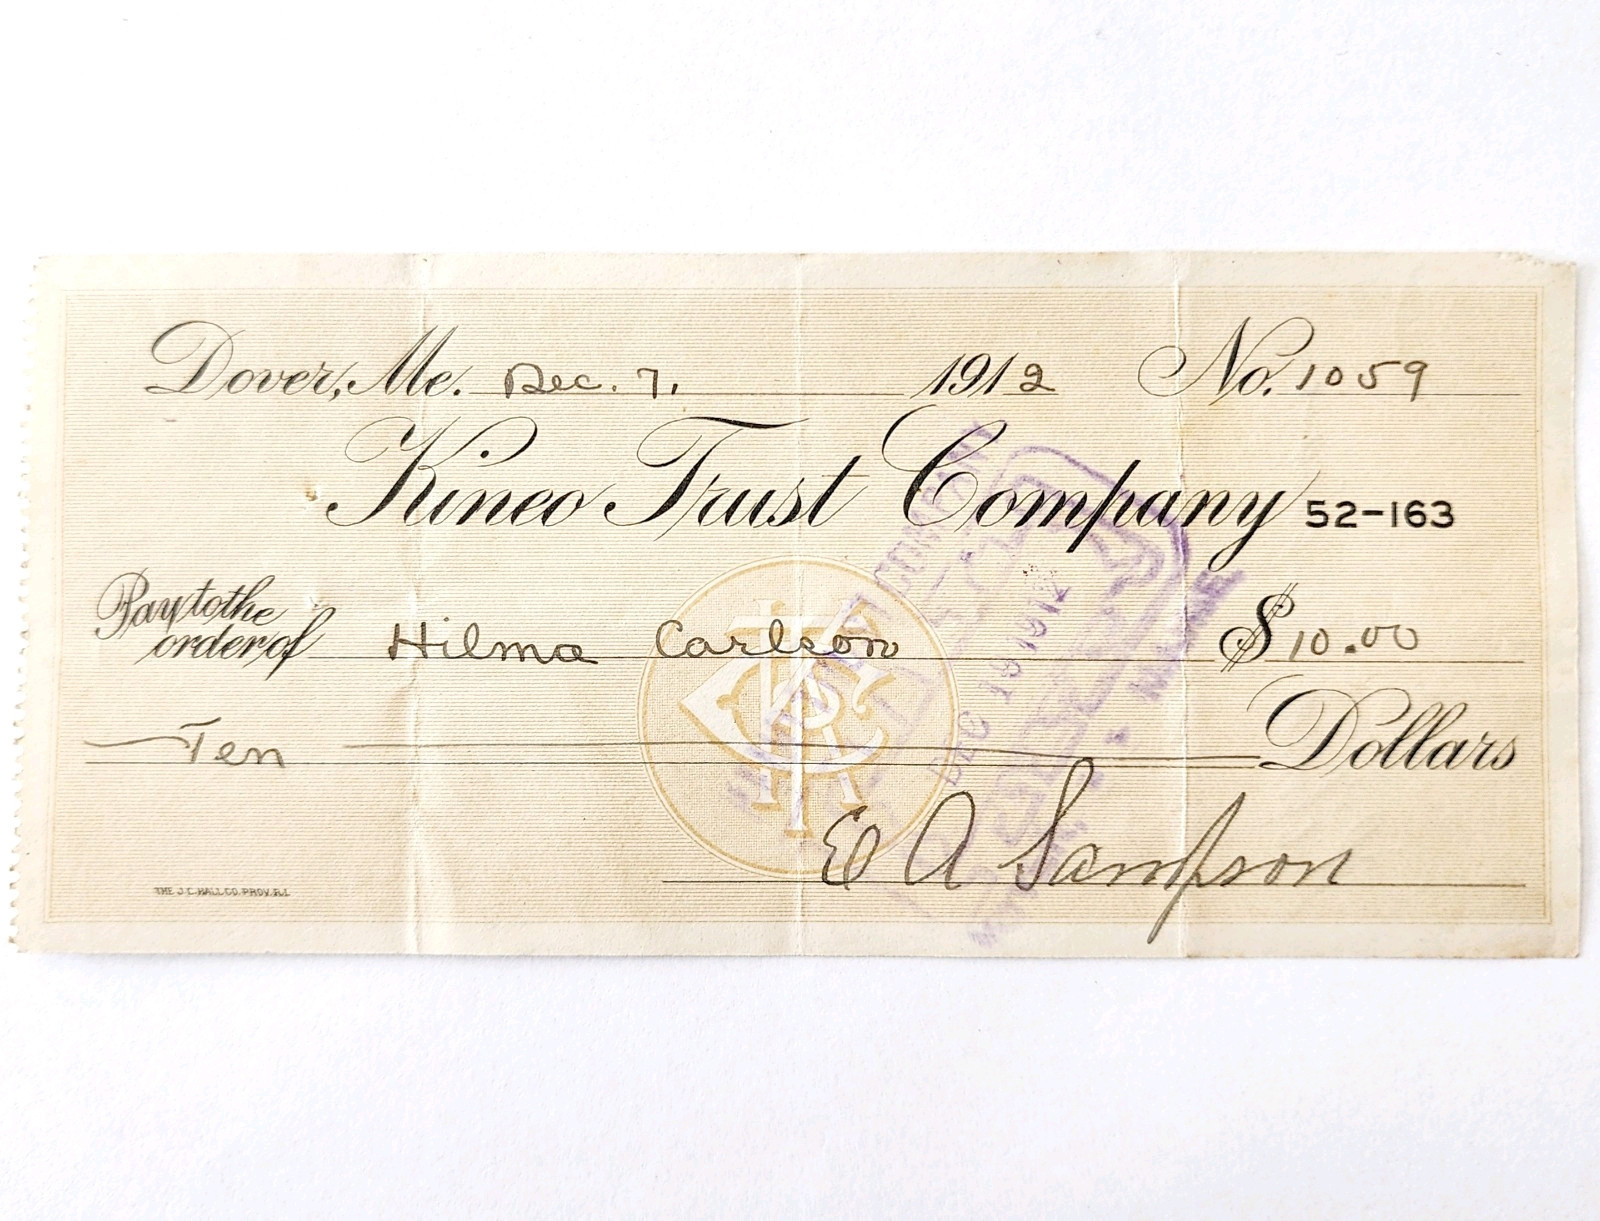 Dover, Me. Dec. 7. 1912 No. 1059
Kineo Trust Company 52-163
Pay to the
order of Hilma Carlson $ 10.00
Ten Dollars
E A Sampson
THE J.C. HALL CO. PROV. R.I.
COMPANY
DEC 19 1912
MAINE